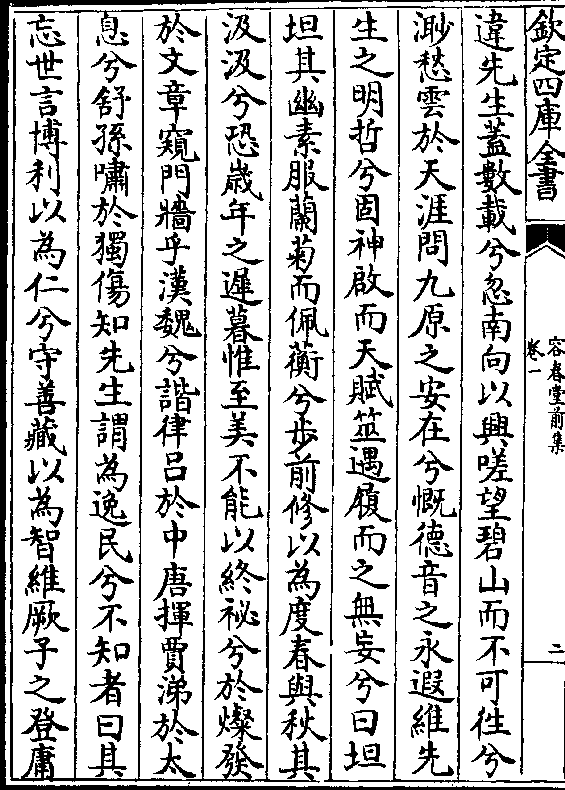 欽定四庫全書
容春堂前集
卷一
二
違先生蓋數載兮忽南向以興嗟望碧山而不可徃兮
渺愁雲於天涯問九原之安在兮慨德音之永遐維先
生之明哲兮固神啟而天賦筮遇履而之無妄兮曰坦
坦其幽素服蘭菊而佩蘅兮歩前修以為度春與秋其
汲汲兮恐歲年之遲暮惟至美不能以終祕兮於燦發
於文章窺門牆乎漢魏兮諧律呂於中唐揮賈涕於太
息兮舒孫嘯於獨傷知先生謂為逸民兮不知者曰其
忘世言博利以為仁兮守善藏以為智維厥子之登庸